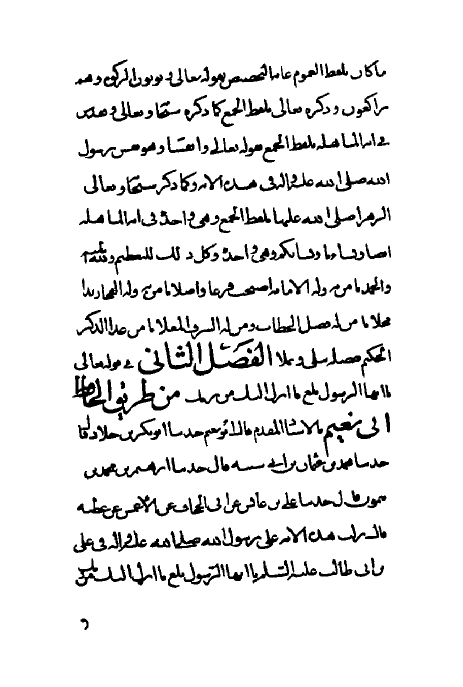 ما كان بلفظ العموم عاما لتخصيص بقوله تعالى ويوتون الزكوة وهم
راكعون وذكره تعالى بلفظ الجمع كما ذكره سبحانه وتعالى
في اية المباهلة بلفظ الجمع بقوله تعالى وانفسنا وهو نفس رسول
الله صلى الله عليه واله في هذه الاية وكما ذكر سبحانه وتعالى
الزهرا صلى الله عليها بلفظ الجمع وهي واحدة في اية المباهلة
ايضا ونساءنا ونساءكم وهي واحدة وكل ذلك للتعظيم
والحمد له الامامة اصبحت فرعا واصلا
له فصل الخطاب ومن له الذكر
المحكم فصله الفصل الثاني في قوله تعالى
يا ايها الرسول بلغ ما انزل اليك من ربك من طريق الحافظ
ابي نعيم بالاسناد المقدم قال ابو نعيم حدثنا ابو بكر بن خلاد قال
حدثنا محمد بن عثمان بن ابي شيبة قال حدثنا ابرهيم بن محمد بن
ميمون قال حدثنا علي بن عابس عن ابي الجحاف عن الاعمش عن عطية
قال نزلت هذه الاية على رسول الله صلى الله عليه واله في علي
بن ابي طالب عليه السلم يا ايها الرسول بلغ ما انزل اليك من ربك
و